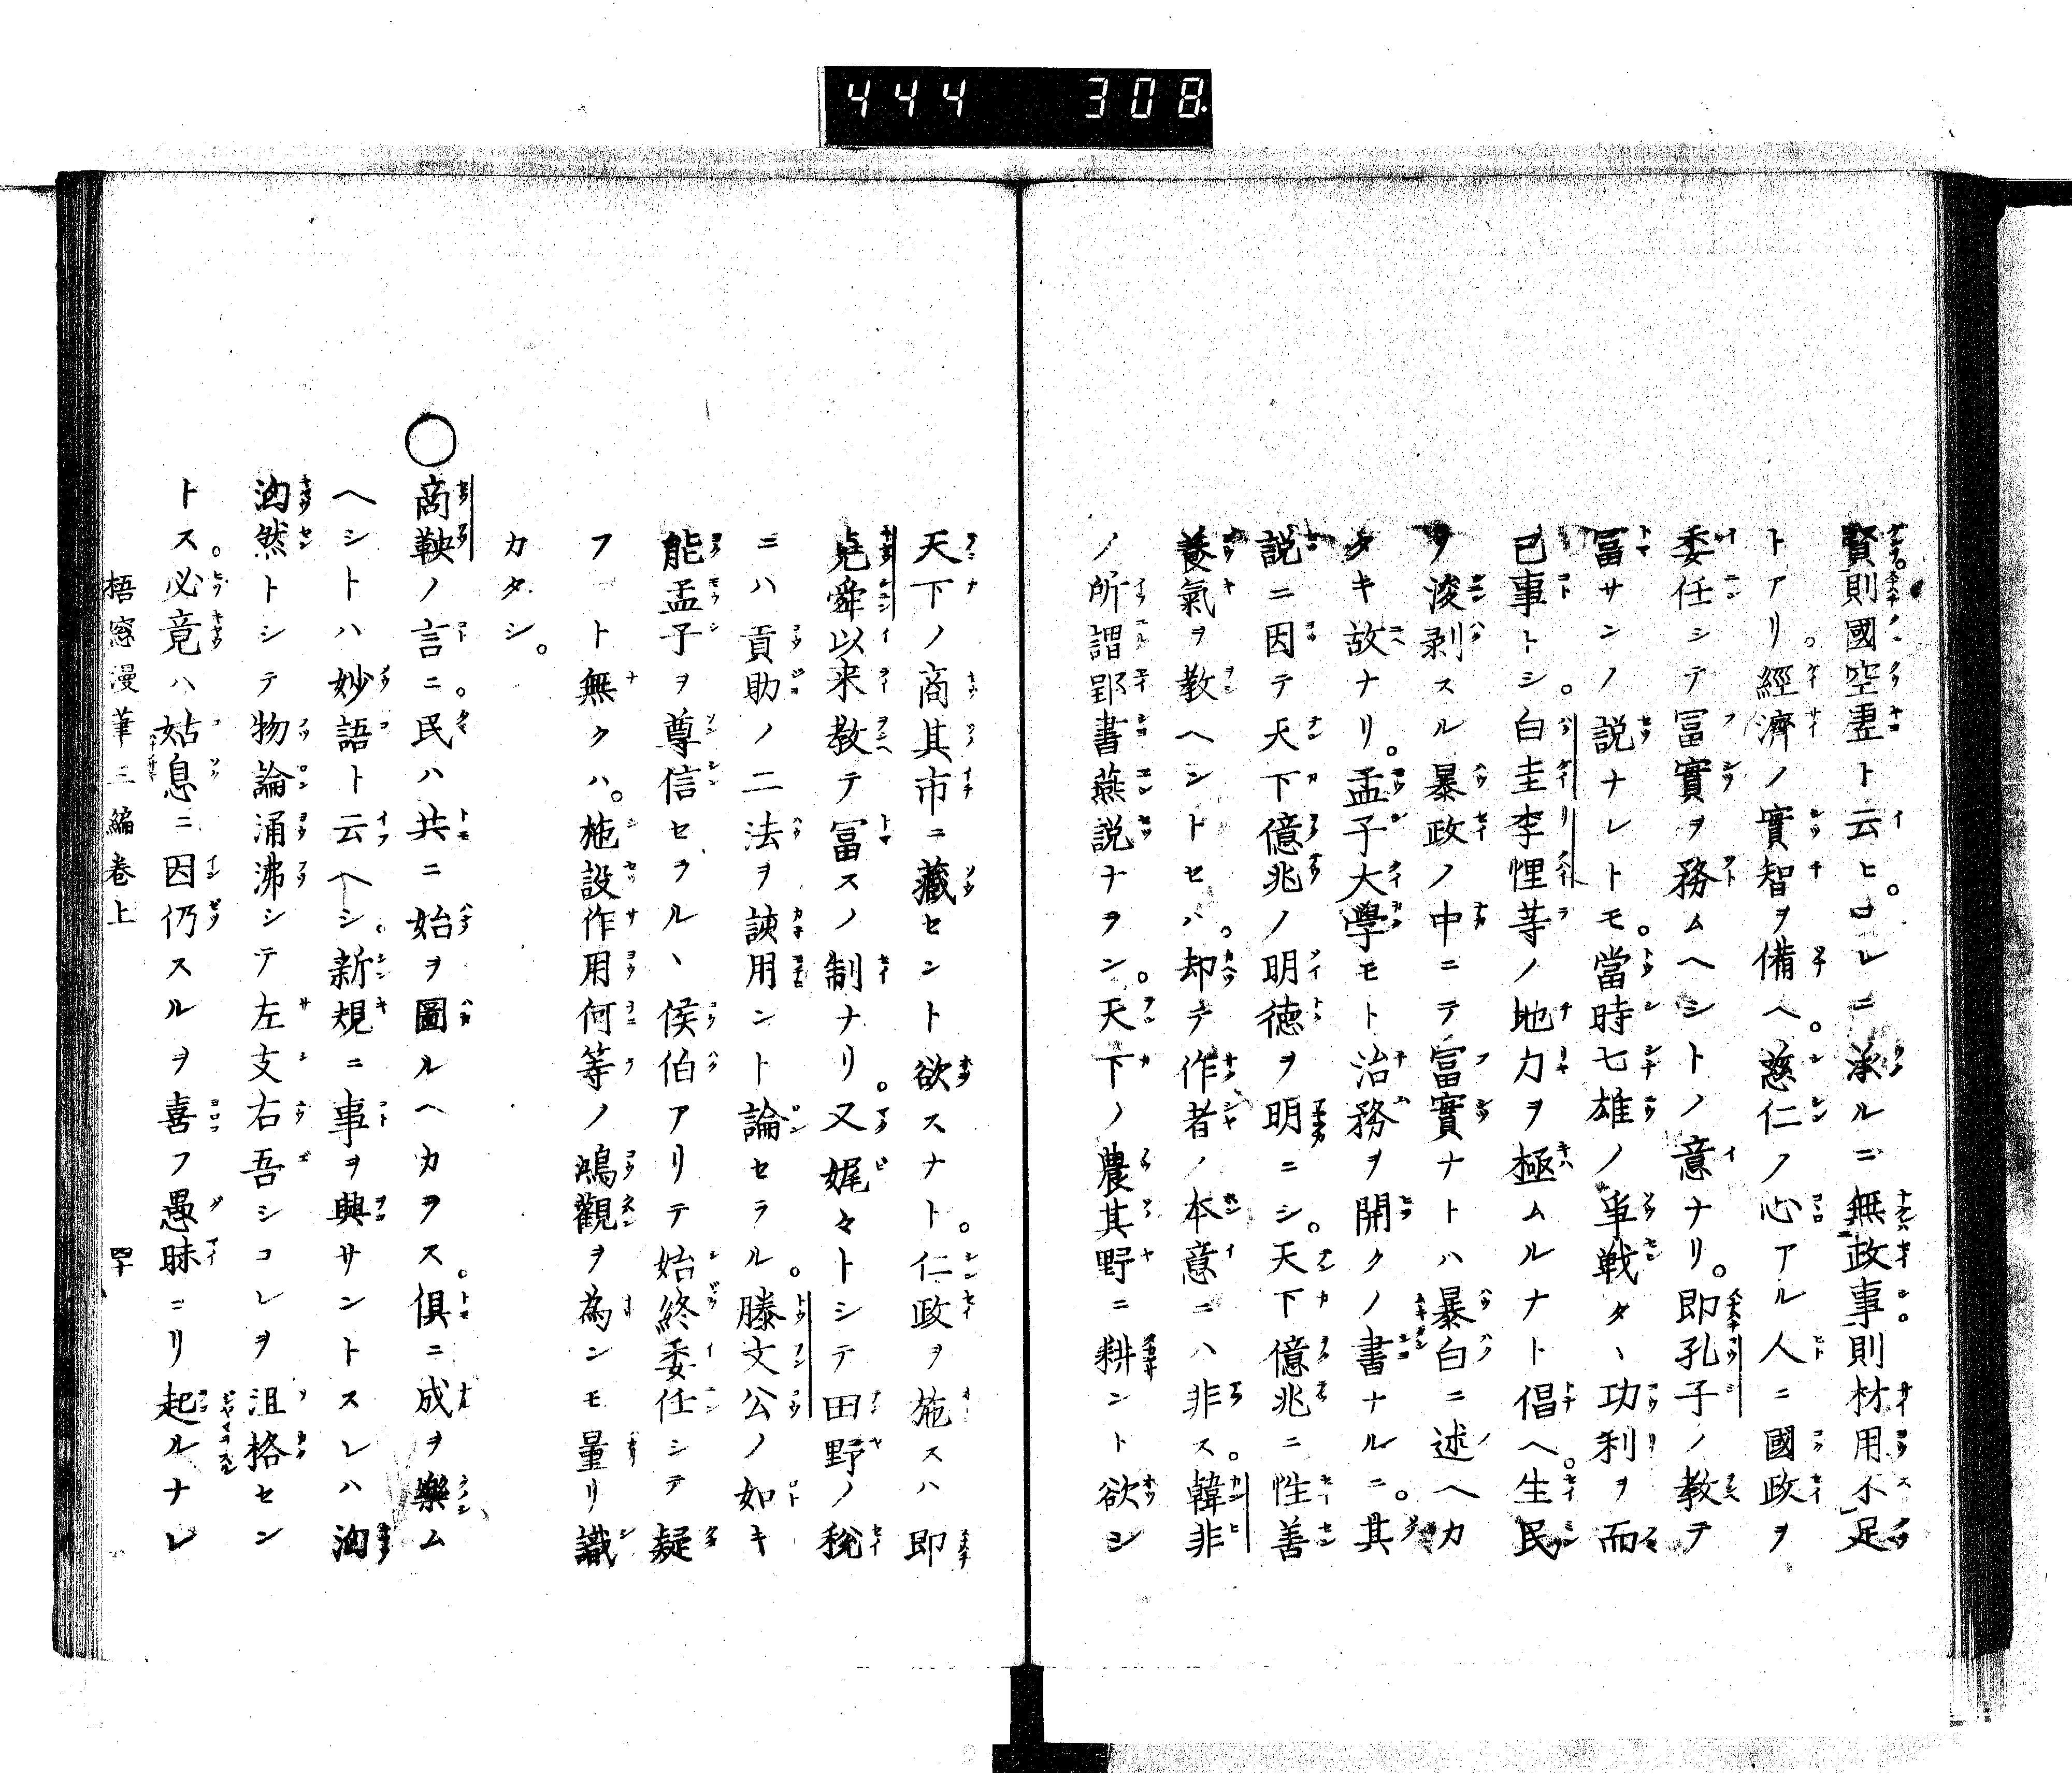 444 308
賢則國空虚ト云ヒ。コレニ承ルニ無政事則材用不足
トアリ。經濟ノ實智ヲ備ヘ。慈仁ノ心アル人ニ國政ヲ
委任シテ冨實ヲ務ムヘシトノ意ナリ。即孔子ノ教テ
冨サンノ説ナレトモ。當時七雄ノ爭戦タヽ功利ヲ而
已事トシ。白圭李悝等ノ地力ヲ極ムルナト倡ヘ。生民
ヲ浚剥スル暴政ノ中ニテ富實ナトハ暴白ニ述ヘカ
タキ故ナリ。孟子大學モト治務ヲ開クノ書ナルニ。其
説ニ因テ天下億兆ノ明徳ヲ明ニシ。天下億兆ニ性善
養氣ヲ教ヘントセハ。却テ作者ノ本意ニハ非ス。韓非
ノ所謂郢書燕説ナヲン。天下ノ農其野ニ耕ント欲シ
天下ノ商其市ニ藏セント欲スナト。仁政ヲ施スハ即
堯舜以来教テ冨スノ制ナリ。又娓々トシテ田野ノ税
ニハ貢助ノ二法ヲ諌用ント論セラル。滕文公ノ如キ
能孟子ヲ尊信セラルヽ侯伯アリテ始終委任シテ疑
フト無クハ。施設作用何等ノ鴻觀ヲ為ンモ量リ識
カタシ。
〇商鞅ノ言ニ。民ハ共ニ始ヲ圖ルヘカヲス。倶ニ成ヲ樂ム
ヘシトハ妙語ト云ヘシ。新規ニ事ヲ興サントスレハ洶
洶然トシテ物論涌沸シテ左支右吾シコレヲ沮格セン
トス。必竟ハ姑息ニ因仍スルヲ喜フ愚昧ニリ起ルナレ
梧窓漫筆三編卷上 四十